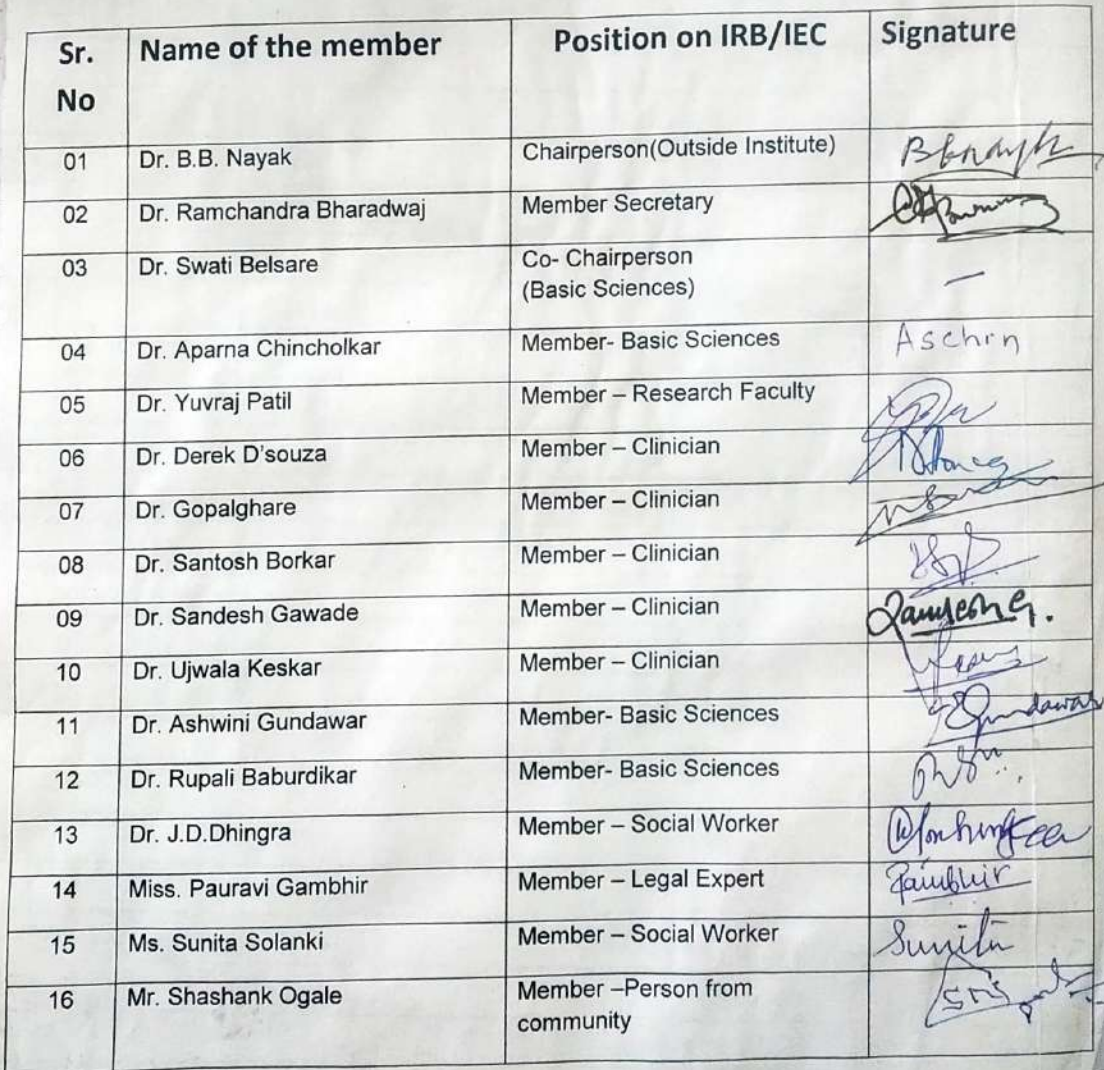 Sr. No Name of the member Position on IRB/IEC Signature
01 Dr. B.B. Nayak Chairperson(Outside Institute) BBNayak
02 Dr. Ramchandra Bharadwaj Member Secretary
03 Dr. Swati Belsare Co- Chairperson —
(Basic Sciences)
04 Dr. Aparna Chincholkar Member- Basic Sciences Aschin
05 Dr. Yuvraj Patil Member – Research Faculty
06 Dr. Derek D'souza Member – Clinician
07 Dr. Gopalghare Member – Clinician
08 Dr. Santosh Borkar Member – Clinician
09 Dr. Sandesh Gawade Member – Clinician
10 Dr. Ujwala Keskar Member – Clinician
11 Dr. Ashwini Gundawar Member- Basic Sciences Gundawar
12 Dr. Rupali Baburdikar Member- Basic Sciences
13 Dr. J.D.Dhingra Member – Social Worker
14 Miss. Pauravi Gambhir Member – Legal Expert
15 Ms. Sunita Solanki Member – Social Worker Sunita
16 Mr. Shashank Ogale Member –Person from
community